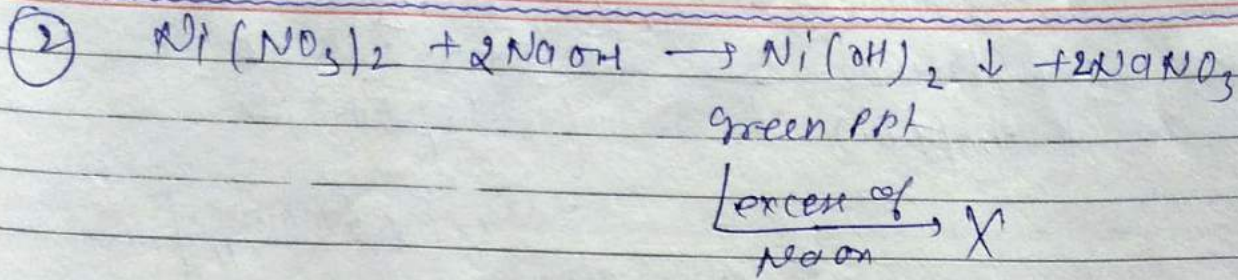 ② Ni(NO3)2 + 2NaOH → Ni(OH)2 ↓ + 2NaNO3
Green ppt
excess of
NaOH → X